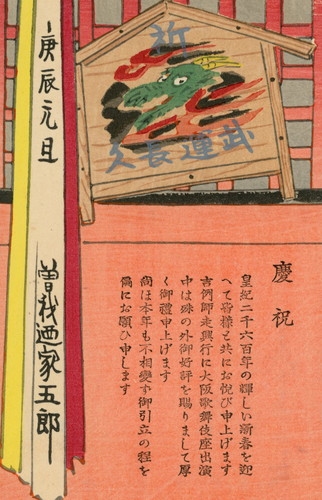 慶祝
皇紀二千六百年の輝しい新春を迎
へて皆樣と共にお悅び申上げます
吉例師走興行に大阪歌舞伎座出演
中は殊の外御好評を賜りまして厚
く御禮申上げます
尙ほ本年も不相變す御引立の程を
偏にお願ひ申します
祈
武運長久
庚辰元旦
曽我廼家五郎